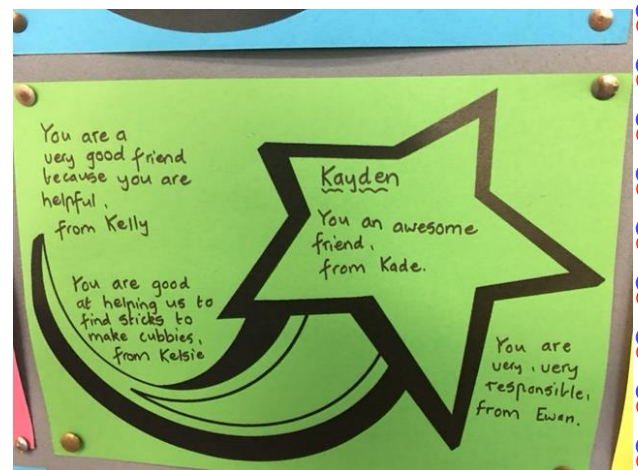 You are a
very good friend
because you are
helpful.
from Kelly
Kayden
You an awesome
friend.
from Kade.
You are good
at helping us to
find sticks to
make cubbies,
from Kelsie
You are
very, very
responsible,
from Ewan.